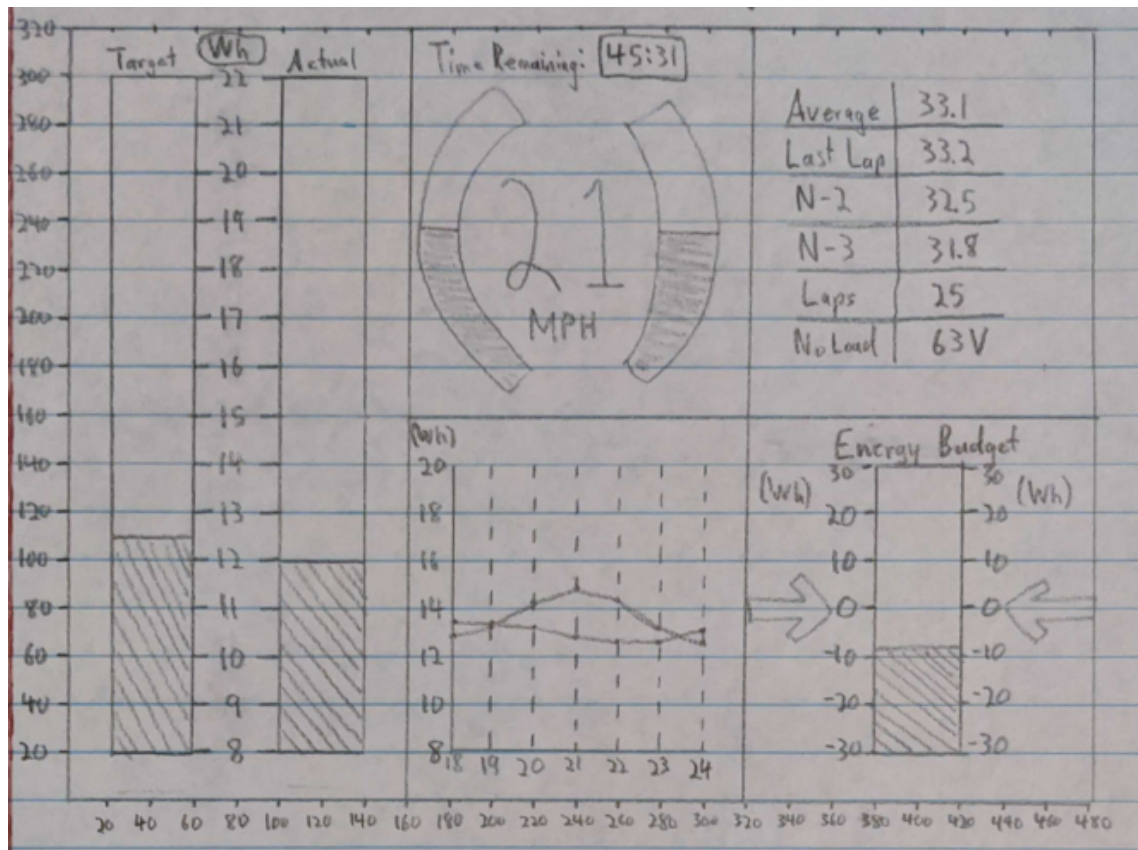 320
300
280
260
240
220
200
180
160
140
120
100
80
60
40
20
Target
Wh
Actual
22
21
20
19
18
17
16
15
14
13
12
11
10
9
8
Time Remaining: 45:31
21
MPH
Average 33.1
Last Lap 33.2
N-2 32.5
N-3 31.8
Laps 25
No Load 63V
(Wh)
20
18
16
14
12
10
8
18 19 20 21 22 23 24
Energy Budget
(Wh) 30 30 (Wh)
20 20
10 10
0 0
-10 -10
-20 -20
-30 -30
20 40 60 80 100 120 140 160 180 200 220 240 260 280 300 320 340 360 380 400 420 440 460 480